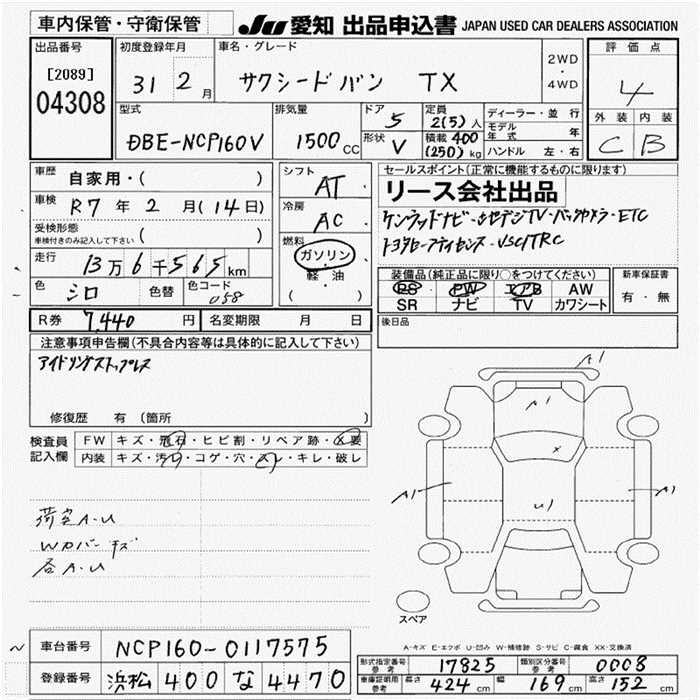 車内保管・守衛保管
JU 愛知 出品申込書 JAPAN USED CAR DEALERS ASSOCIATION
出品番号
[2089]
04308
初度登録年月
31 2 月
車名・グレード
サクシードバン TX
2WD
・
4WD
評価点
4
外装 内装
C B
型式
DBE-NCP160V
排気量
1500 CC
ドア 5
形状 V
定員 2(5) 人
積載 400 (250) kg
ディーラー・並行
モデル年式 年
ハンドル 左・右
車歴 自家用・( )
車検 R7 年 2 月 (14日)
受検形態
車検付きのみ記入して下さい ( )
走行 13万 6千565 km
色 シロ 色替 色コード 058
シフト AT
冷房 AC
燃料 ガソリン・
軽・油
( )
セールスポイント(正常に機能するものに限ります)
リース会社出品
ケンウッドナビ・地デジTV・バックカメラ・ETC
トヨタセーフティセンス・VSC/TRC
装備品(純正品に限り○をつけてください)
PS PW エアB AW
SR ナビ TV カワシート
新車保証書
有・無
後日品
R券 7,440 円 名変期限 月 日
注意事項申告欄(不具合内容等は具体的に記入して下さい)
アイドリングストップレス
修復歴 有(箇所 )
検査員記入欄
FW キズ・飛石・ヒビ割・リペア跡・X要
内装 キズ・汚れ・コゲ・穴・スレ・キレ・破レ
荷室A-U
Wカバーキズ
各A-U
A1
A1
X
A1
U1
A1
スペア
A-キズ E-エクボ U-凹み W-補修跡 S-サビ C-腐食 XX-交換済
車台番号 NCP160-0117575
登録番号 浜松 400 な 4470
型式指定番号 参考 17825 類別区分番号 参考 0008
車庫証明用 参考 長さ 424 cm 幅 169 cm 高さ 152 cm